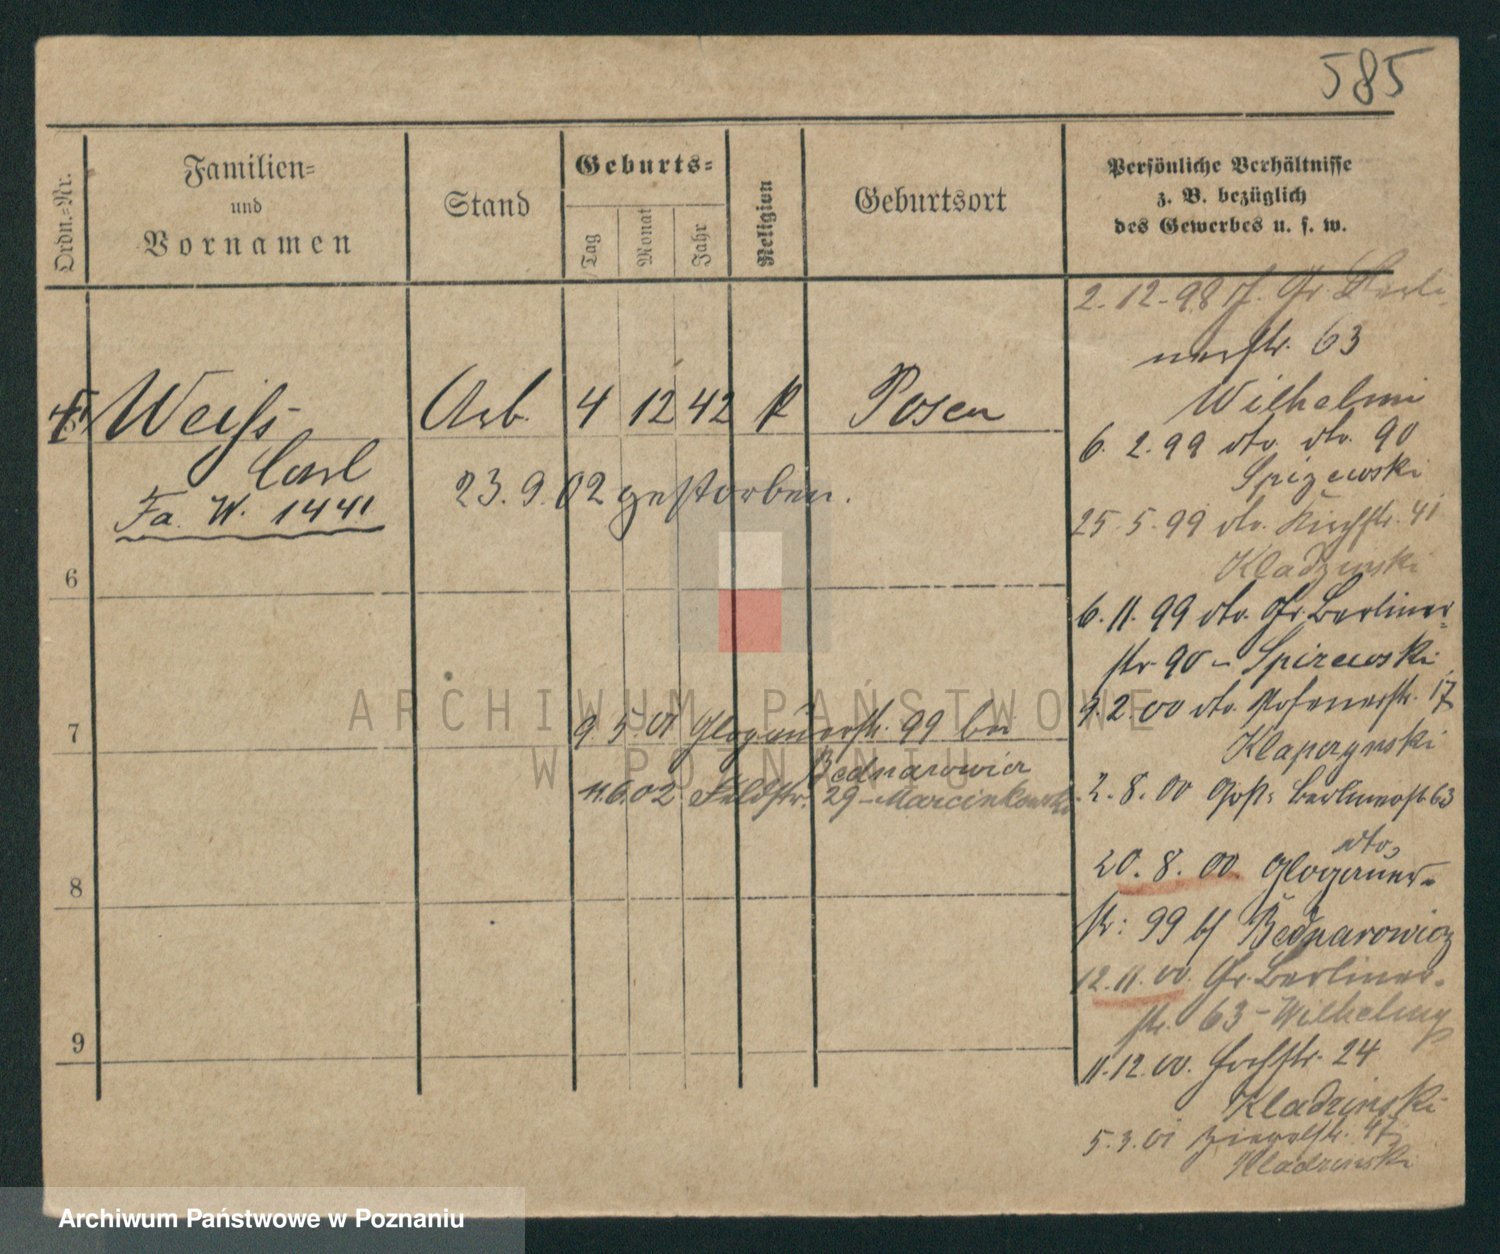 585
Ordn.-Nr.
Familien-
und
Vornamen
Stand
Geburts-
Tag
Monat
Jahr
Religion
Geburtsort
Persönliche Verhältnisse
z. B. bezüglich
des Gewerbes u. s. w.
Weiß Arb. 4 12 42 k Posen
Carl
Fa. W. 1441
23. 9. 02 gestorben.
6
7
8
9
9. 5. 01 Glogauerstr. 99 bei
Bednarowicz
11.6.02. Feldstr. 29 - Marcinkowski
2. 12. 98 Gr. Berli-
nerstr. 63
Wilhelmi
6. 2. 99 dto. dto. 90
Spizewski
25. 5. 99 dto. Kirchstr. 41
Kladzinski
6. 11. 99 dto. Gr. Berliner-
str 90 - Spizewski
9. 2. 00 dto. Posenerstr. 17
Klapczynski
2. 8. 00 Berlinerst 63
dto,
20. 8. 00 Glogauer-
str: 99 bei Bednarowicz
12. 11. 00 Gr. Berliner-
str. 63 - Wilhelmy
11. 12. 00. Hochstr. 24
Kladzinski
5. 3. 01 47
Kladzinski
ARCHIWUM PAŃSTWOWE
W POZNANIU
Archiwum Państwowe w Poznaniu